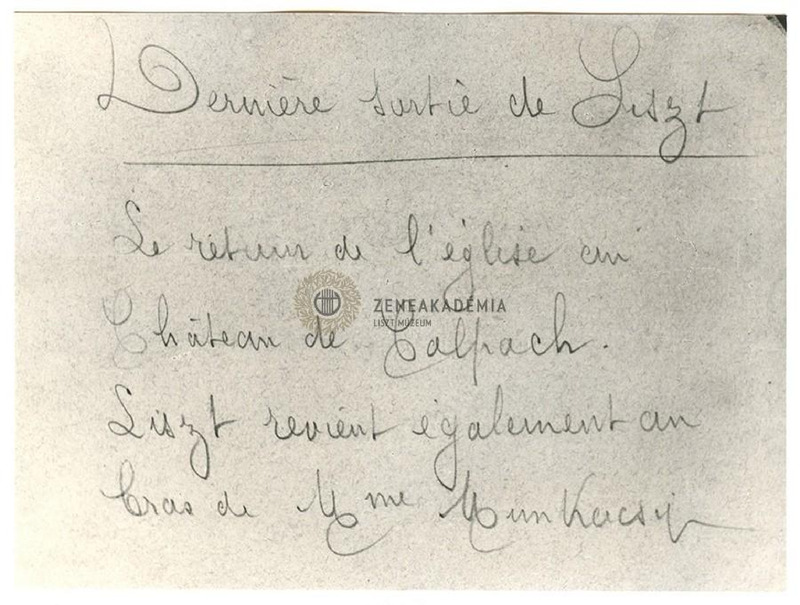 Dernière sortie de Liszt
Le retour de l'église au
Château de Colpach.
ZENEAKADÉMIA
LISZT MÚZEUM
Liszt revient également au
bras de Mme Munkacsy